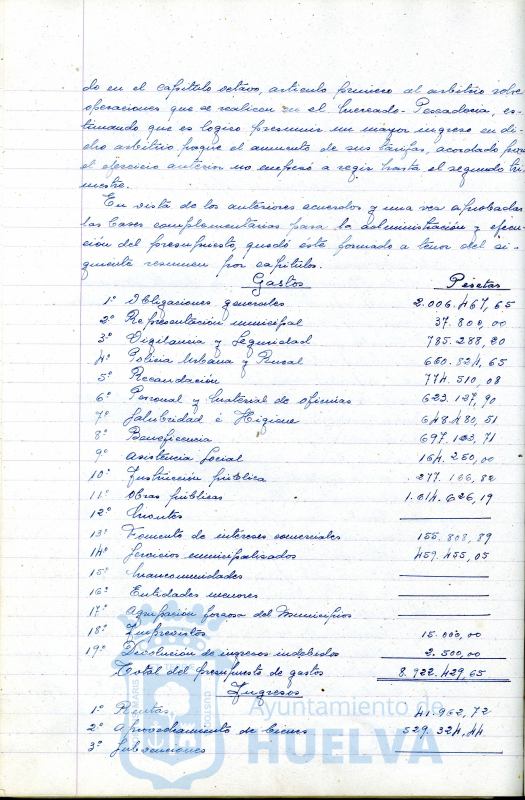 do en el capítulo octavo, artículo primero al arbitrio sobre
operaciones que se realicen en el Mercado-Pescadería, es-
timando que es logico presumir un mayor ingreso en di-
cho arbitrio porque el aumento de sus tarifas, acordado para
el ejercicio anterior no empezó a regir hasta el segundo tri-
mestre.
En vista de los anteriores acuerdos y una vez aprobadas
las bases complementarias para la administración y ejecu-
ción del presupuesto, quedó éste formado a tenor del si-
guiente resumen por capítulos.
Gastos Pesetas
1º Obligaciones generales 2.006.467,65
2º Representación municipal 37.800,00
3º Vigilancia y Seguridad 785.288,20
4º Policia Urbana y Rural 660.824,65
5º Recaudación 774.510,08
6º Personal y material de oficinas 623.127,90
7º Salubridad e Higiene 648.480,51
8º Beneficencia 697.123,71
9º Asistencia Social 164.250,00
10º Instrucción pública 277.166,82
11º Obras públicas 1.014.626,19
12º Montes
13º Fomento de intereses comerciales 155.808,89
14º Servicios municipalizados 459.455,05
15º Mancomunidades
16º Entidades menores
17º Agrupación forzosa del Municipios
18º Imprevistos 15.000,00
19º Devolución de ingresos indebidos 2.500,00
Total del presupuesto de gastos 8.922.429,65
Ingresos
1º Rentas 41.962,72
2º Aprovechamiento de bienes 529.324,44
3º Subvenciones
Ayuntamiento de
HUELVA